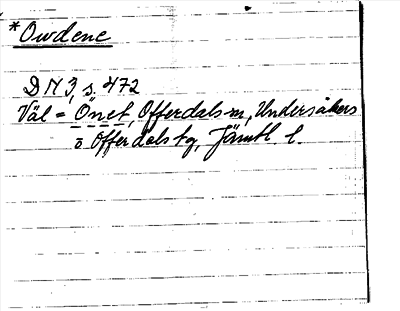 *Owdene
DN 3, s. 472
Väl = Önet, Offerdals sn, Undersåkers
o Offerdals tg, Jämtl l.